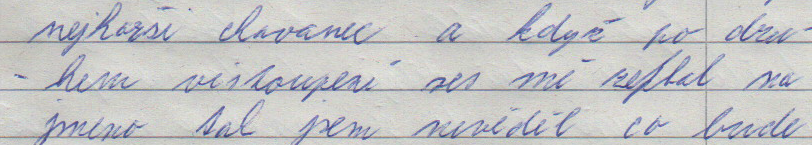 nejhorší chovanec a když po dru-
-hem viskoupení ses mě zeptal na
jmeno tak jsem nevěděl co bude